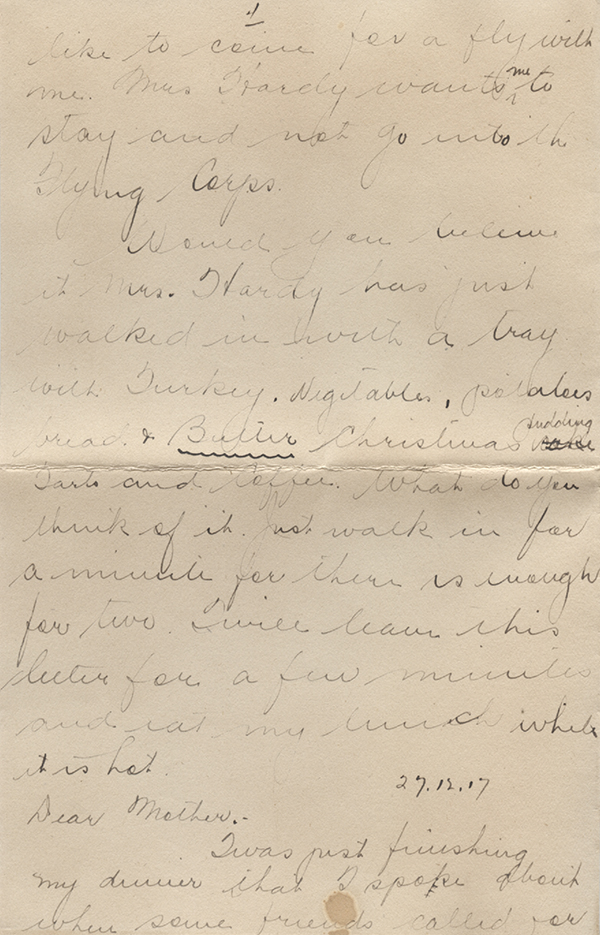 4
like to come for a fly with
me. Mrs Hardy wants me to
stay and not go into th
Flying Corps.
Would you believe
it Mrs. Hardy has just
walked in with a tray
with Turkey. Negitables, potatoes
bread & Butter Christmas pudding
Tarts and Coffee. What do you
think of it. Just walk in for
a minute for there is enough
for two. I will leave this
letter for a few minutes
and eat my lunch while
it is hot.
27.12.17
Dear Mother.-
I was just finishing
my dinner that I spoke about
when some friends called for